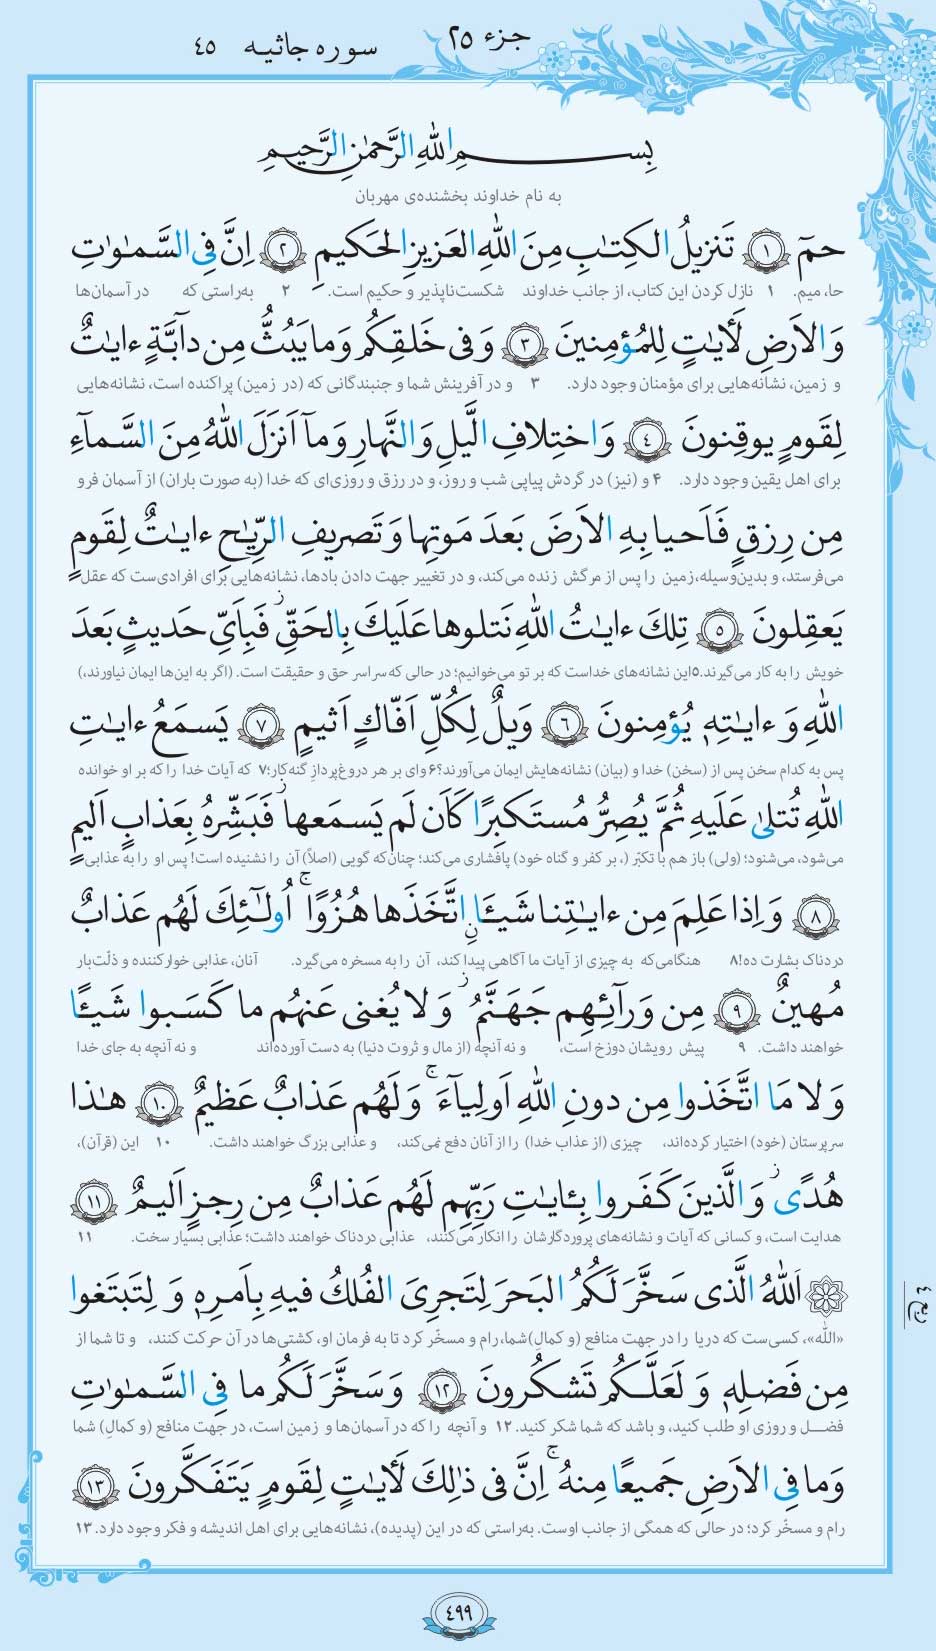 جزء ۲۵
سوره جاثیه ۴۵
بِسمِ اللهِ الرَّحمٰنِ الرَّحیمِ
به نام خداوند بخشنده‌ی مهربان
حمٓ ﴿۱﴾ تَنزیلُ الکِتٰبِ مِنَ اللهِ العَزیزِ الحَکیمِ ﴿۲﴾ اِنَّ فِی السَّمٰوٰتِ
حا، میم. ۱ نازل کردن این کتاب، از جانب خداوند شکست‌ناپذیر و حکیم است. ۲ به‌راستی که در آسمان‌ها
وَ الاَرضِ لَأٓیٰتٍ لِلمُؤمِنینَ ﴿۳﴾ وَ فی خَلقِکُم وَ ما یَبُثُّ مِن دآبَّةٍ ءایٰتٌ
و زمین، نشانه‌هایی برای مؤمنان وجود دارد. ۳ و در آفرینش شما و جنبندگانی که (در زمین) پراکنده است، نشانه‌هایی
لِقَومٍ یوقِنونَ ﴿۴﴾ وَ اختِلافِ الَّیلِ وَ النَّهارِ وَ مآ اَنزَلَ اللهُ مِنَ السَّمآءِ
برای اهل یقین وجود دارد. ۴ و (نیز) در گردش پیاپی شب و روز، و در رزق و روزی‌ای که خدا (به صورت باران) از آسمان فرو
مِن رِزقٍ فَاَحیا بِهِ الاَرضَ بَعدَ مَوتِها وَ تَصریفِ الرِّیٰحِ ءایٰتٌ لِقَومٍ
می‌فرستد، و بدین‌وسیله، زمین را پس از مرگش زنده می‌کند، و در تغییر جهت دادن بادها، نشانه‌هایی برای افرادی‌ست که عقل
یَعقِلونَ ﴿۵﴾ تِلکَ ءایٰتُ اللهِ نَتلوها عَلَیکَ بِالحَقِّ ۖ فَبِاَیِّ حَدیثٍ بَعدَ
خویش را به کار می‌گیرند.۵ این نشانه‌های خداست که بر تو می‌خوانیم؛ در حالی که سراسر حق و حقیقت است. (اگر به این‌ها ایمان نیاورند،)
اللهِ وَ ءایٰتِهٖ یُؤمِنونَ ﴿۶﴾ وَیلٌ لِکُلِّ اَفّاکٍ اَثیمٍ ﴿۷﴾ یَسمَعُ ءایٰتِ
پس به کدام سخن پس از (سخن) خدا و (بیان) نشانه‌هایش ایمان می‌آورند؟۶ وای بر هر دروغ‌پردازِ گنه‌کار؛۷ که آیات خدا را که بر او خوانده
اللهِ تُتلیٰ عَلَیهِ ثُمَّ یُصِرُّ مُستَکبِرًا کَاَن لَم یَسمَعها ۖ فَبَشِّرهُ بِعَذابٍ اَلیمٍ
می‌شود، می‌شنود؛ (ولی) باز هم با تکبّر (، بر کفر و گناه خود) پافشاری می‌کند؛ چنان‌که گویی (اصلاً) آن را نشنیده است! پس او را به عذابی
﴿۸﴾ وَ اِذا عَلِمَ مِن ءایٰتِنا شَیـًٔا اتَّخَذَها هُزُوًا ۚ اُولٰٓئِکَ لَهُم عَذابٌ
دردناک بشارت ده!۸ هنگامی‌که به چیزی از آیات ما آگاهی پیدا کند، آن را به مسخره می‌گیرد. آنان، عذابی خوارکننده و ذلّت‌بار
مُهینٌ ﴿۹﴾ مِن وَرآئِهِم جَهَنَّمُ ۖ وَ لا یُغنی عَنهُم ما کَسَبوا شَیـًٔا
خواهند داشت. ۹ پیش رویشان دوزخ است، و نه آنچه (از مال و ثروت دنیا) به دست آورده‌اند و نه آنچه به جای خدا
وَ لا مَا اتَّخَذوا مِن دونِ اللهِ اَولِیآءَ ۚ وَ لَهُم عَذابٌ عَظیمٌ ﴿۱۰﴾ هٰذا
سرپرستان (خود) اختیار کرده‌اند، چیزی (از عذاب خدا) را از آنان دفع نمی‌کند، و عذابی بزرگ خواهند داشت. ۱۰ این (قرآن)،
هُدًی ۖ وَ الَّذینَ کَفَروا بِـٔایٰتِ رَبِّهِم لَهُم عَذابٌ مِن رِجزٍ اَلیمٌ ﴿۱۱﴾
هدایت است، و کسانی که آیات و نشانه‌های پروردگارشان را انکار می‌کنند، عذابی دردناک خواهند داشت؛ عذابی بسیار سخت. ۱۱
اَللهُ الَّذی سَخَّرَ لَکُمُ البَحرَ لِتَجرِیَ الفُلکُ فیهِ بِاَمرِهٖ وَ لِتَبتَغوا
«الله»، کسی‌ست که دریا را در جهت منافع (و کمالِ) شما، رام و مسخّر کرد تا به فرمان او، کشتی‌ها در آن حرکت کنند، و تا شما از
ربع ۴
مِن فَضلِهٖ وَ لَعَلَّکُم تَشکُرونَ ﴿۱۲﴾ وَ سَخَّرَ لَکُم ما فِی السَّمٰوٰتِ
فضل و روزی او طلب کنید، و باشد که شما شکر کنید. ۱۲ و آنچه را که در آسمان‌ها و زمین است، در جهت منافع (و کمال) شما
وَ ما فِی الاَرضِ جَمیعًا مِنهُ ۚ اِنَّ فی ذٰلِکَ لَأٓیٰتٍ لِقَومٍ یَتَفَکَّرونَ ﴿۱۳﴾
رام و مسخّر کرد؛ در حالی که همگی از جانب اوست. به‌راستی که در این (پدیده)، نشانه‌هایی برای اهل اندیشه و فکر وجود دارد. ۱۳
۴۹۹